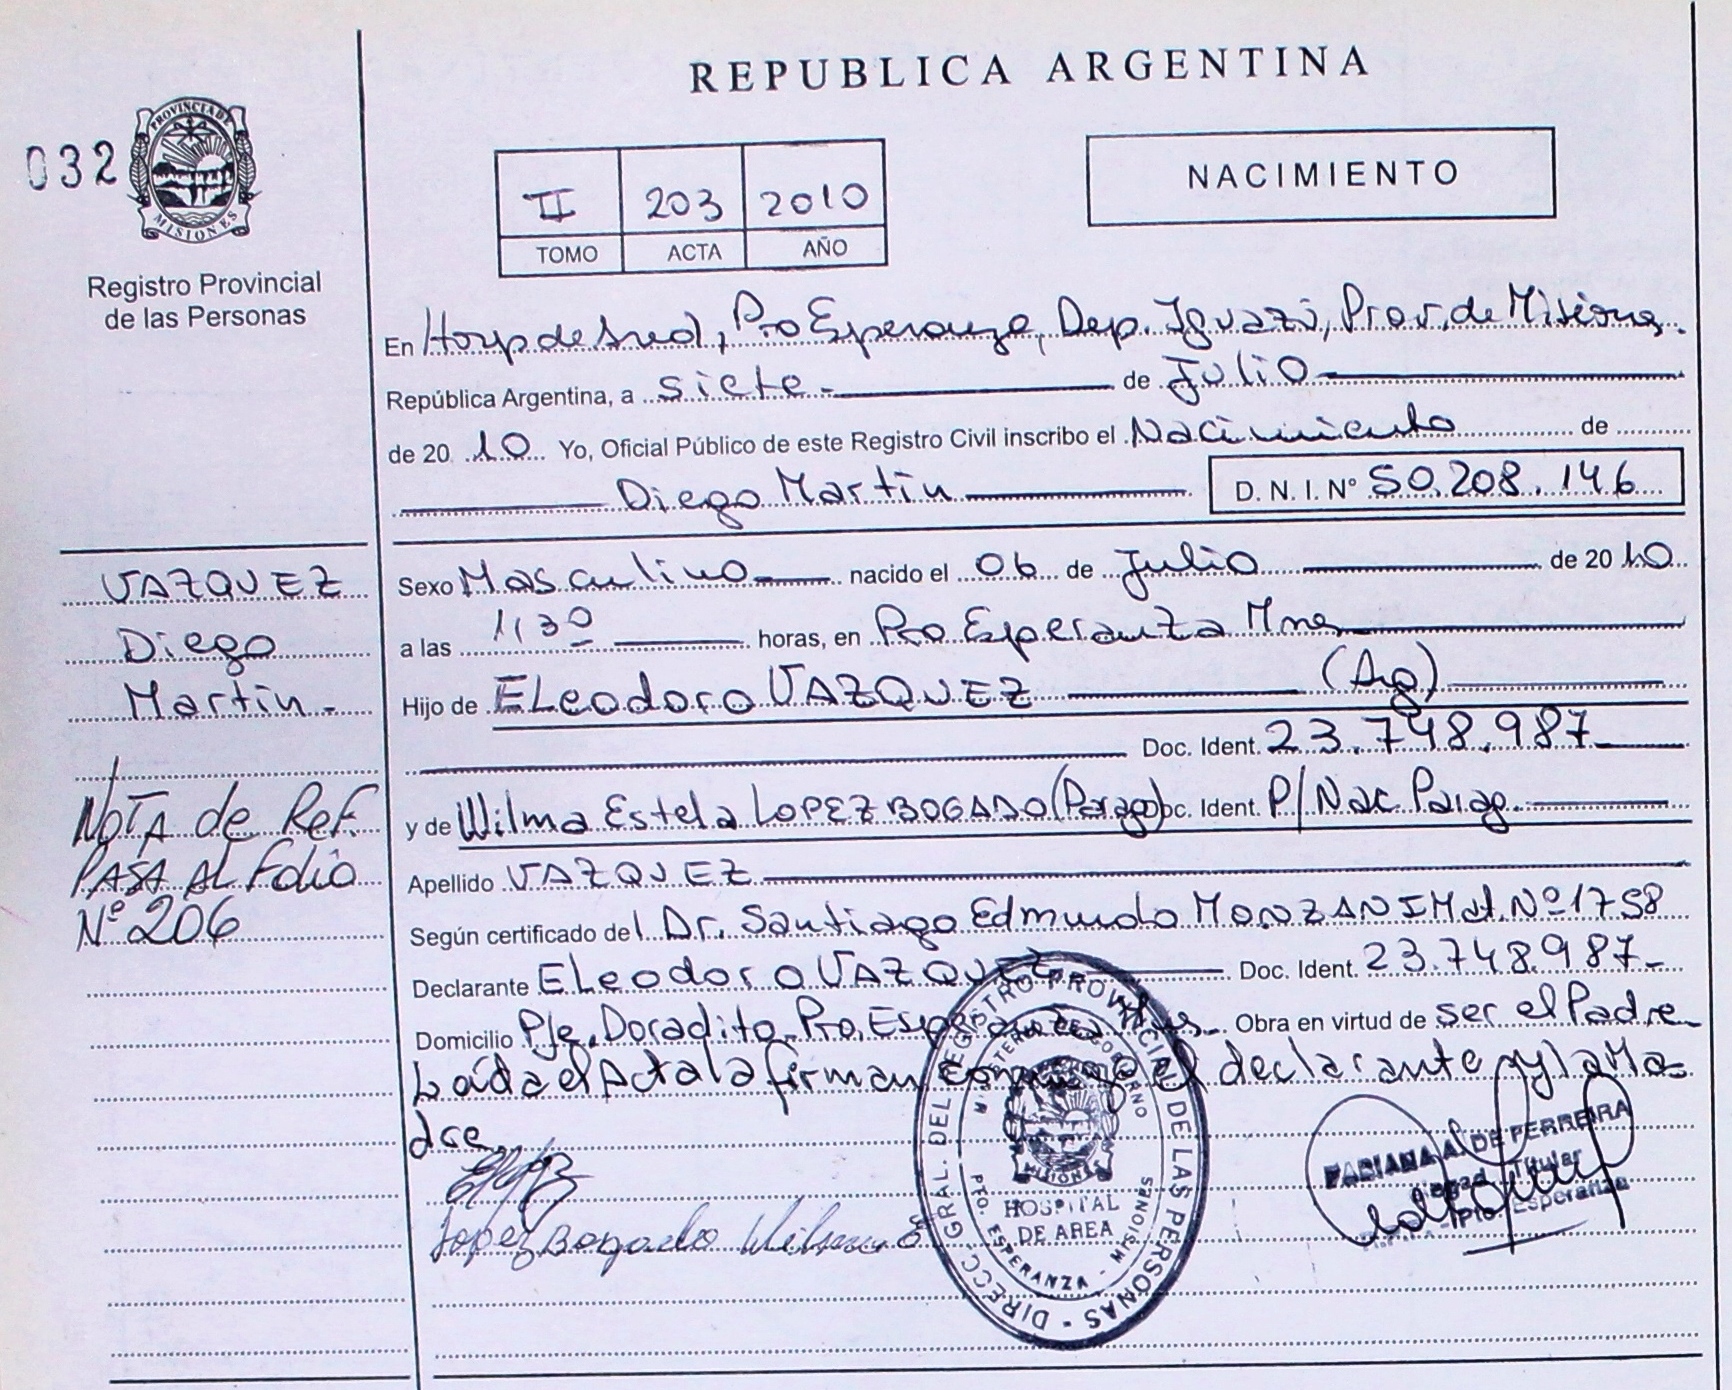 REPUBLICA ARGENTINA
032
PROVINCIA DE
MISIONES
Registro Provincial
de las Personas
II 203 2010
TOMO ACTA AÑO
NACIMIENTO
En Hosp de Area, Pto Esperanza, Dep. Iguazú, Prov. de Misiones.
República Argentina, a siete.- de Julio
de 2010 Yo, Oficial Público de este Registro Civil inscribo el Nacimiento de
Diego Martin D. N. I. Nº 50.208.146
VAZQUEZ
Diego
Martin.-
NOTA de Ref.
PASA AL Folio
Nº 206
Sexo Masculino nacido el 06 de Julio de 2010
a las horas, en Pto Esperanza Mnes
Hijo de ELeodoro VAZQUEZ (Arg)
Doc. Ident. 23.748.987
y de Wilma Estela LOPEZ BOGADO (Parag) Doc. Ident. P/Nac Parag.
Apellido VAZQUEZ
Según certificado del Dr. Santiago Edmundo MONZANI Mat. Nº 1758
Declarante ELeodoro VAZQUEZ Doc. Ident. 23.748.987-
Domicilio Pje. Doradito Pto. Esperanza Mnes Obra en virtud de ser el Padre
Leída el Acta la firman conmigo el declarante y la Ma
dre.
Lopez Bogado Wilma E
DIRECC. GRAL. DEL REGISTRO PROVINCIAL DE LAS PERSONAS -
MINISTERIO DE GOBIERNO
MISIONES
HOSPITAL
DE AREA
PTO. ESPERANZA - MISIONES
FABIANA A. DE FERREIRA
Titular
Pto. Esperanza